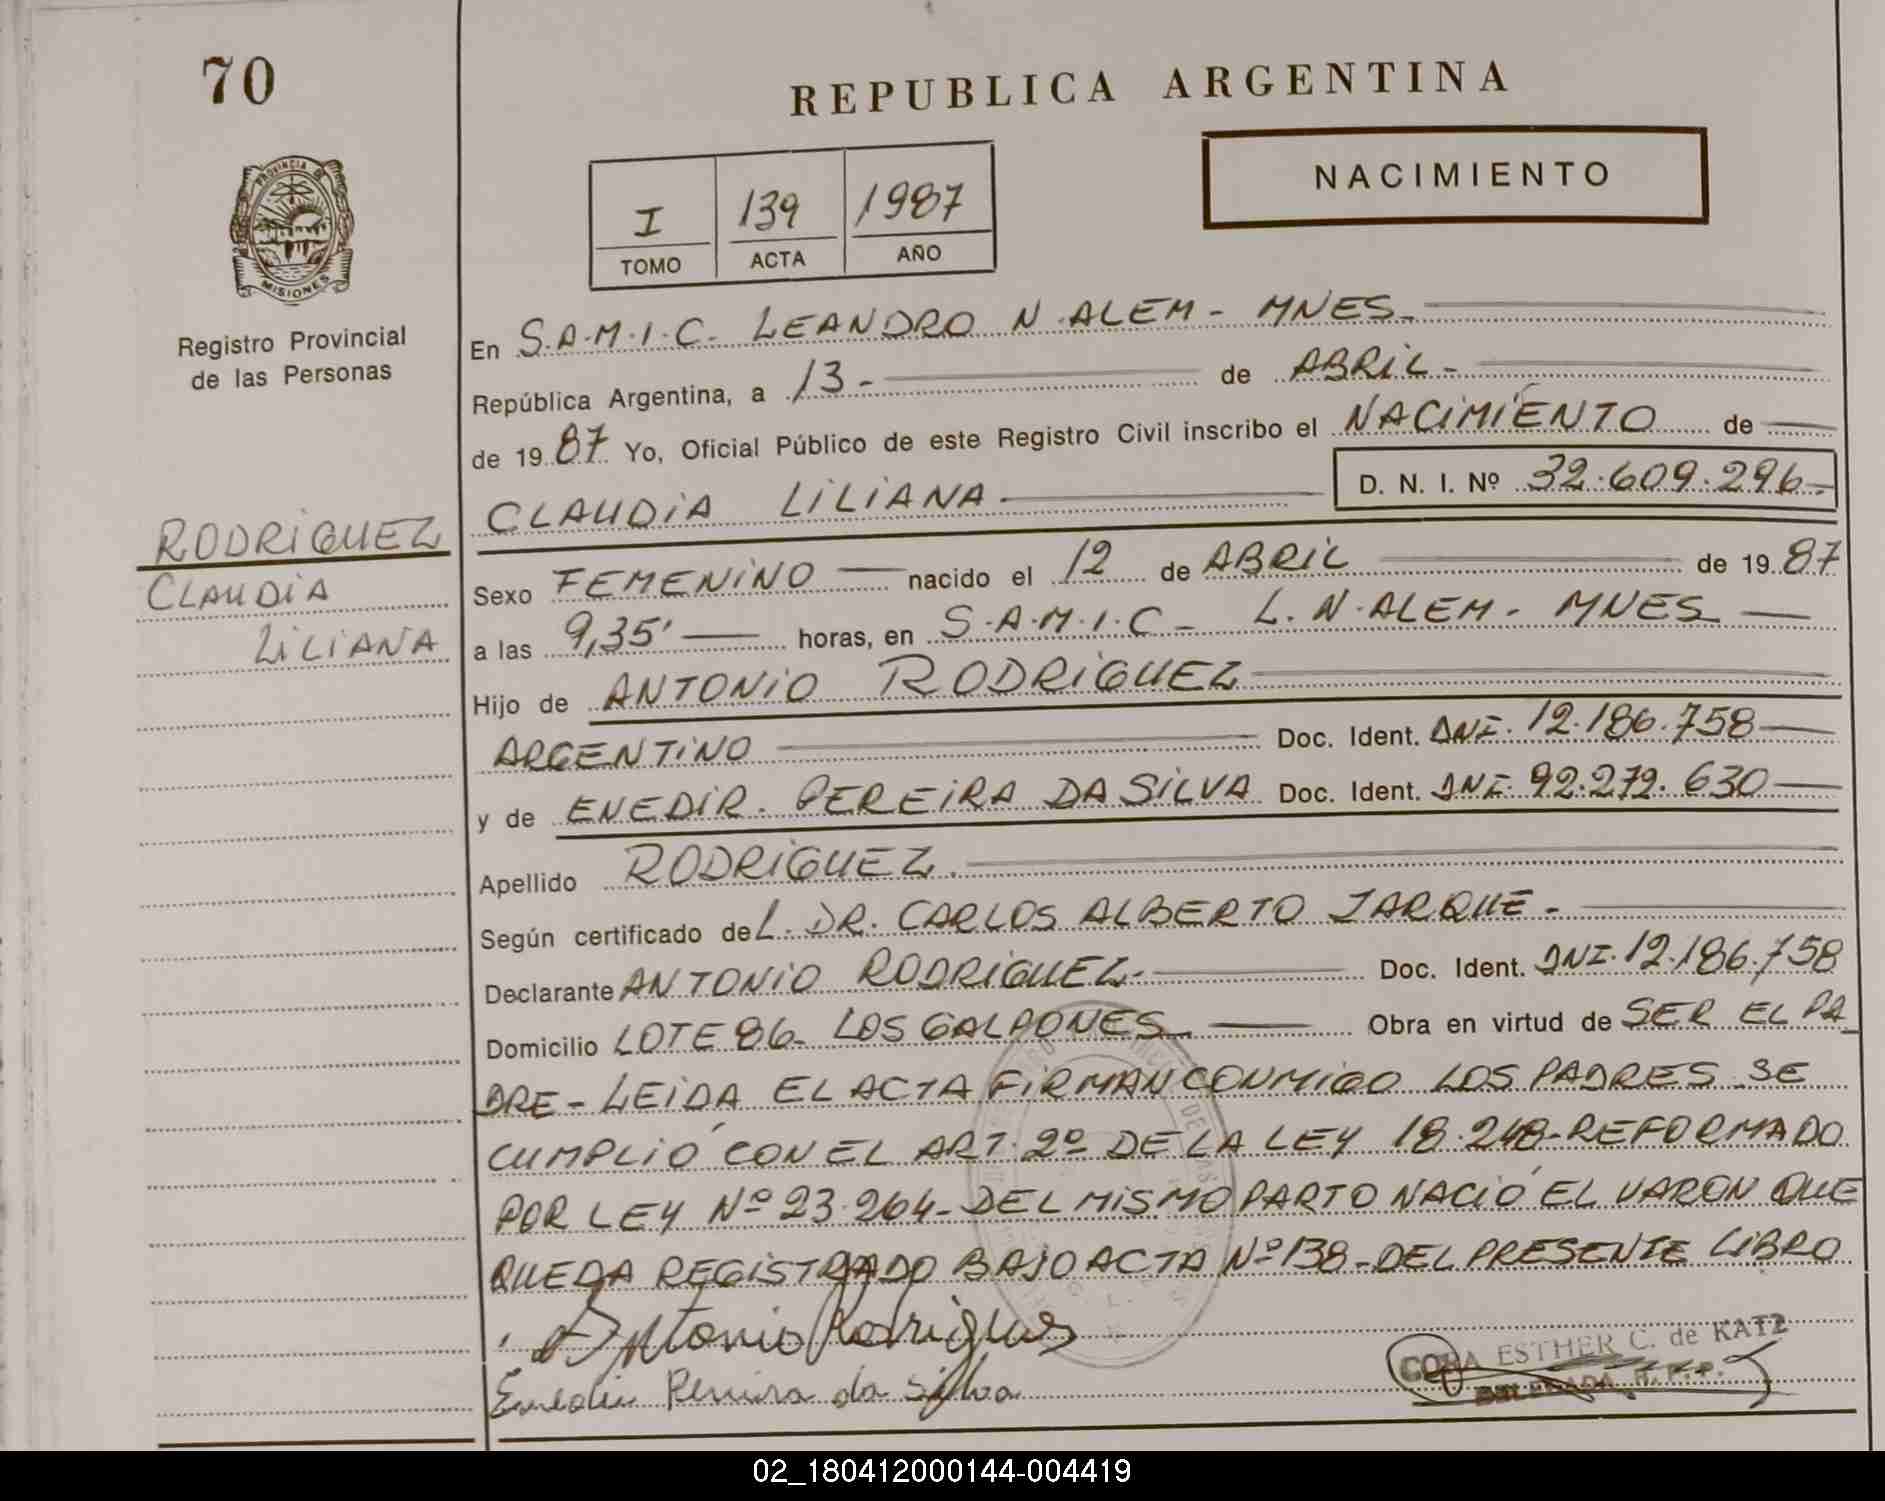 70
REPUBLICA ARGENTINA
PROVINCIA DE
MISIONES
Registro Provincial
de las Personas
I 139 1987
TOMO ACTA AÑO
NACIMIENTO
RODRIGUEZ
CLAUDIA
LILIANA
En S.A.M.I.C. LEANDRO N. ALEM - MNES.
República Argentina, a 13 - de ABRIL -
de 1987 Yo, Oficial Público de este Registro Civil inscribo el NACIMIENTO de
CLAUDIA LILIANA D. N. I. Nº 32.609.296.
Sexo FEMENINO nacido el 12 de ABRIL de 1987
a las 9,35' horas, en S.A.M.I.C - L. N. ALEM - MNES
Hijo de ANTONIO RODRIGUEZ
ARGENTINO Doc. Ident. DNI. 12.186.758
y de ENEDIR. PEREIRA DA SILVA Doc. Ident. DNI. 92.272.630
Apellido RODRIGUEZ.
Según certificado del. DR. CARLOS ALBERTO JARQUE -
Declarante ANTONIO RODRIGUEZ - Doc. Ident. DNI. 12.186.758
Domicilio LOTE 86 - LOS GALPONES Obra en virtud de SER EL PA
DRE - LEIDA EL ACTA FIRMAN CONMIGO LOS PADRES SE
CUMPLIÓ CON EL ART. 2º DE LA LEY 18.248 - REFORMADO
POR LEY Nº 23.264 - DEL MISMO PARTO NACIÓ EL VARON QUE
QUEDA REGISTRADO BAJO ACTA Nº 138 - DEL PRESENTE LIBRO
Antonio Rodrigues
Enedir Pereira da Silva
CORA ESTHER C. de KATZ
DELEGADA R.P.P.
02_180412000144-004419